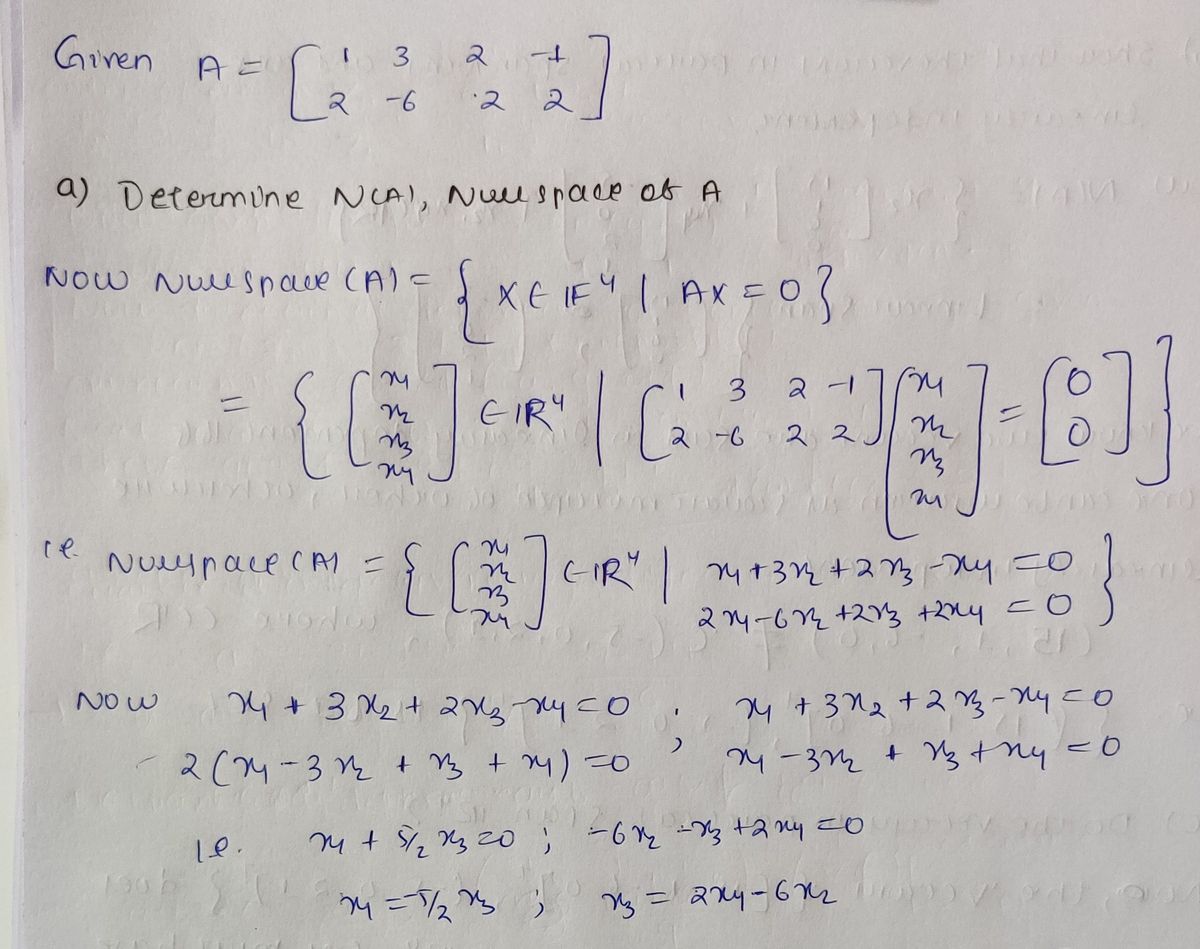 Given A = [ 1 3 2 -1
2 -6 2 2 ]
a) Determine N(A), Null space of A
Now Nullspace (A) = { X ∈ IF⁴ | AX = 0 }
= { [ x₁ x₂ x₃ x₄ ] ∈ IR⁴ | [ 1 3 2 -1 ; 2 -6 2 2 ] [ x₁ x₂ x₃ x₄ ] = [ 0 0 ] }
ie. Nullspace (A) = { [ x₁ x₂ x₃ x₄ ] ∈ IR⁴ | x₁ + 3x₂ + 2x₃ - x₄ = 0
2x₁ - 6x₂ + 2x₃ + 2x₄ = 0 }
Now x₁ + 3x₂ + 2x₃ - x₄ = 0 ; x₁ + 3x₂ + 2x₃ - x₄ = 0
2(x₁ - 3x₂ + x₃ + x₄) = 0 x₁ - 3x₂ + x₃ + x₄ = 0
ie. x₁ + 5/2 x₃ = 0 ; -6x₂ - x₃ + 2x₄ = 0
x₁ = -5/2 x₃ ; x₃ = 2x₄ - 6x₂